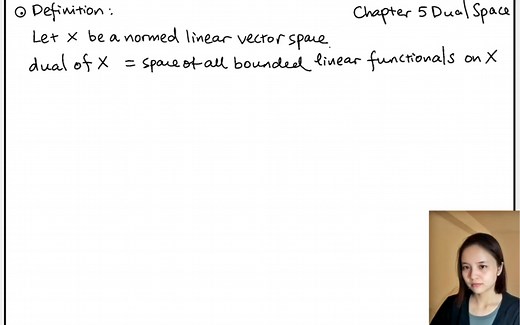 ⊙ Definition: Chapter 5 Dual Space
Let X be a normed linear vector space.
dual of X = space of all bounded linear functionals on X